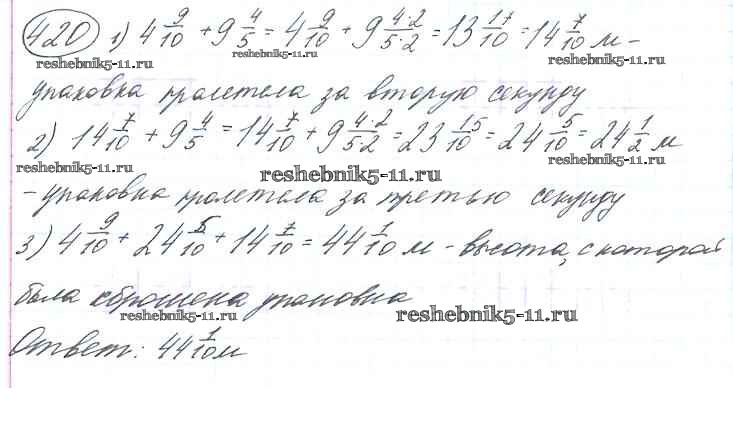 420 1) 4 9/10 + 9 4/5 = 4 9/10 + 9 4·2/5·2 = 13 17/10 = 14 7/10 м -
reshebnik5-11.ru reshebnik5-11.ru reshebnik5-11.ru
упаковка пролетела за вторую секунду
2) 14 7/10 + 9 4/5 = 14 7/10 + 9 4·2/5·2 = 23 15/10 = 24 5/10 = 24 1/2 м
reshebnik5-11.ru reshebnik5-11.ru reshebnik5-11.ru
- упаковка пролетела за третью секунду
3) 4 9/10 + 24 5/10 + 14 7/10 = 44 1/10 м - высота, с которой
была сброшена упаковка
reshebnik5-11.ru reshebnik5-11.ru
Ответ: 44 1/10 м